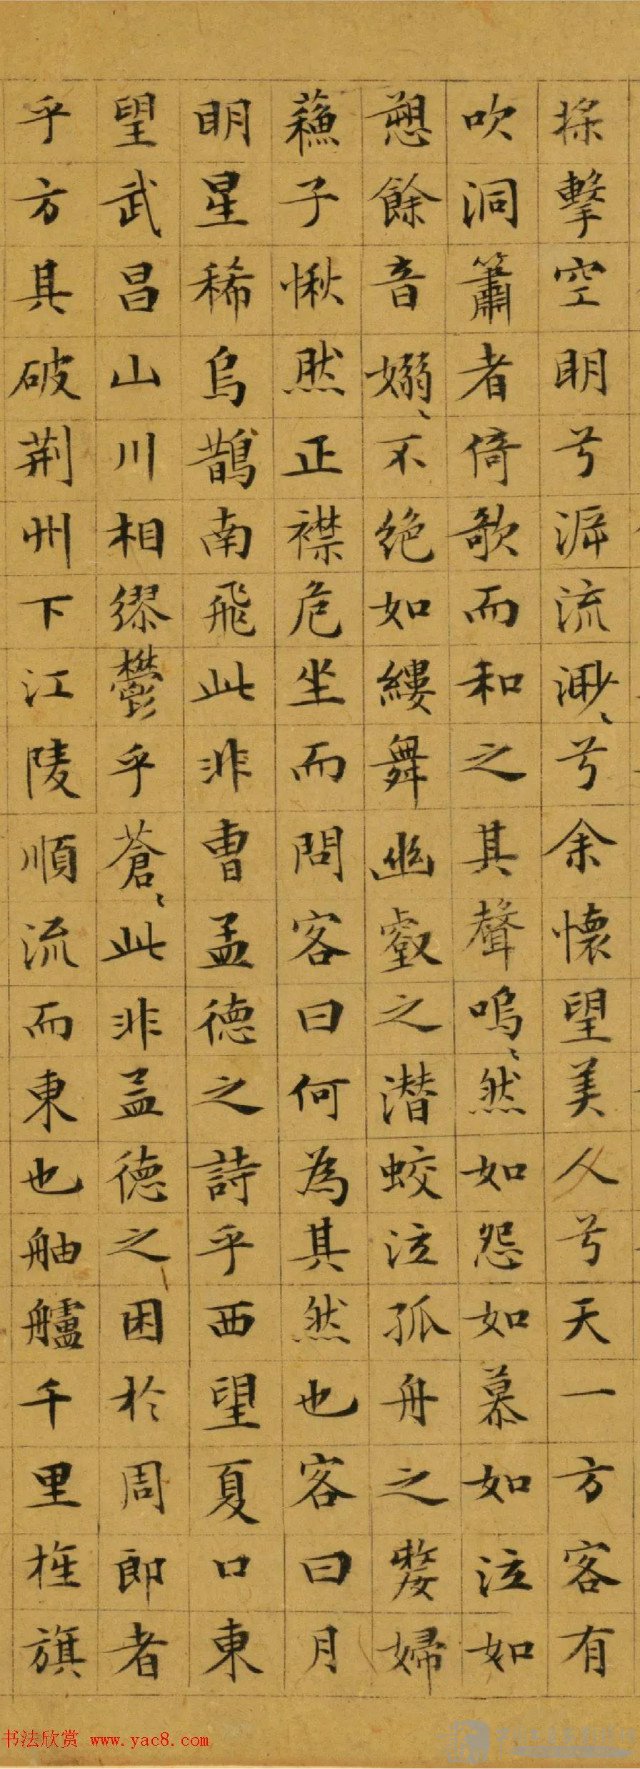 槳擊空明兮泝流渺〻兮余懷望美人兮天一方客有
吹洞簫者倚歌而和之其聲嗚〻然如怨如慕如泣如
愬餘音嫋〻不絶如縷舞幽壑之潛蛟泣孤舟之嫠婦
蘓子愀然正襟危坐而問客曰何為其然也客曰月
明星稀烏鵲南飛此非曹孟德之詩乎西望夏口東
望武昌山川相繆鬱乎蒼〻此非孟德之困於周郎者
乎方其破荊州下江陵順流而東也舳艫千里旌旗
书法欣赏 www.yac8.com